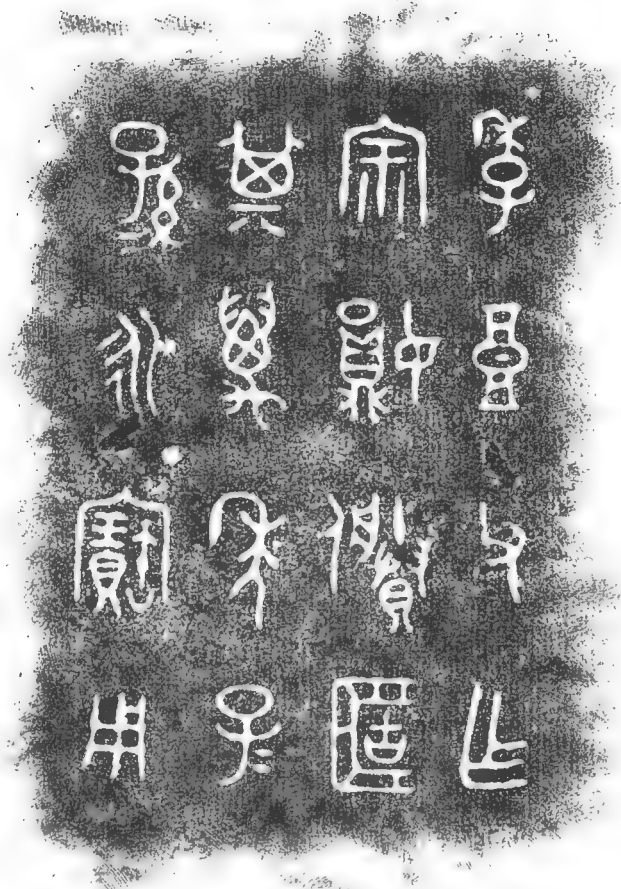 季良父乍
宗娟賸簠
其萬年子=
孫=永寶用